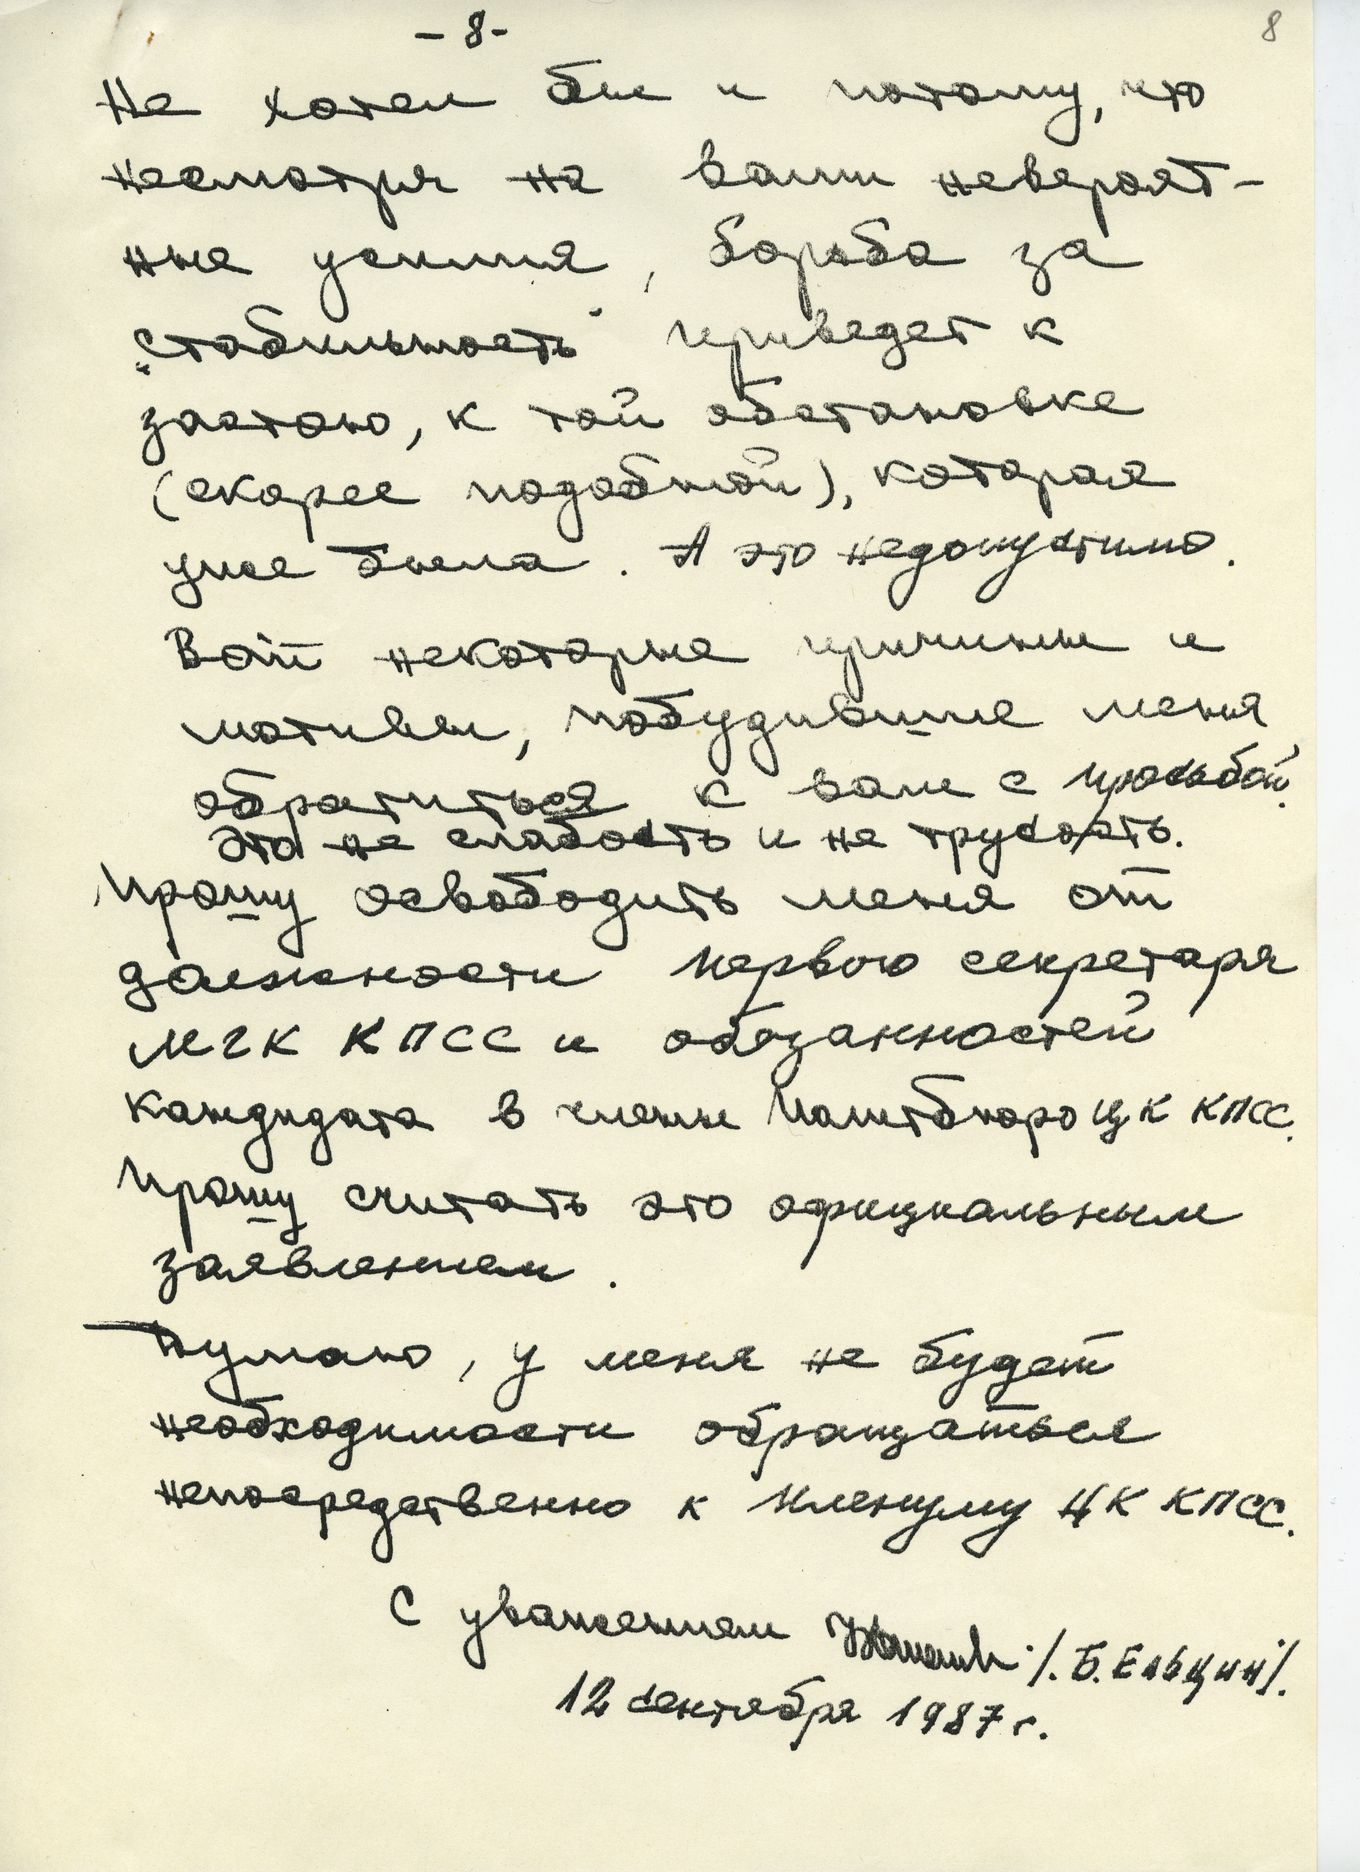 - 8 -
8
Не хотел бы и потому, что
несмотря на ваши невероят-
ные усилия, борьба за
„стабильность" приведет к
застою, к той обстановке
(скорее подобной), которая
уже была. А это недопустимо.
Вот некоторые причины и
мотивы, побудившие меня
обратиться к вам с просьбой.
Это не слабость и не трусость.
Прошу освободить меня от
должности первого секретаря
МГК КПСС и обязанностей
кандидата в члены Политбюро ЦК КПСС.
Прошу считать это официальным
заявлением.
Думаю, у меня не будет
необходимости обращаться
непосредственно к Пленуму ЦК КПСС.
С уважением /. Б. Ельцин/.
12 сентября 1987 г.